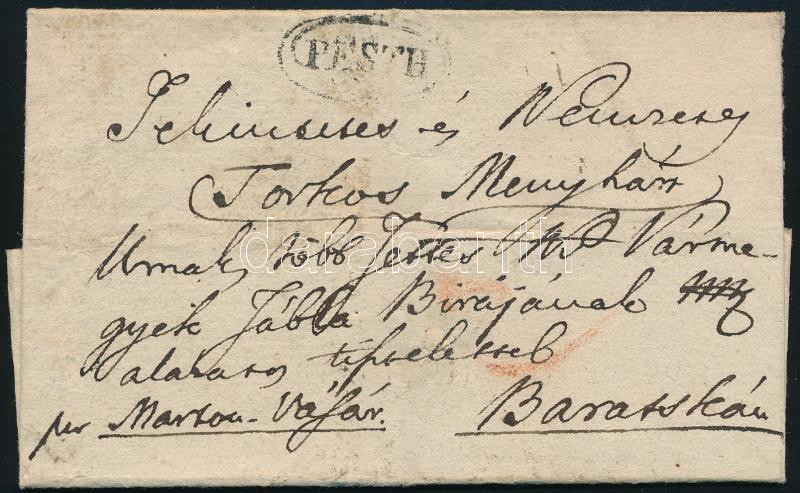 PESTH
Tekintetes és Nemzetes
Torkos Menyhárt
Urnak több Tettes Ns Várme-
gyék Tábla Birájának
alázatos tisztelettel
per Marton-Vásár.
Baratskán
darabanth